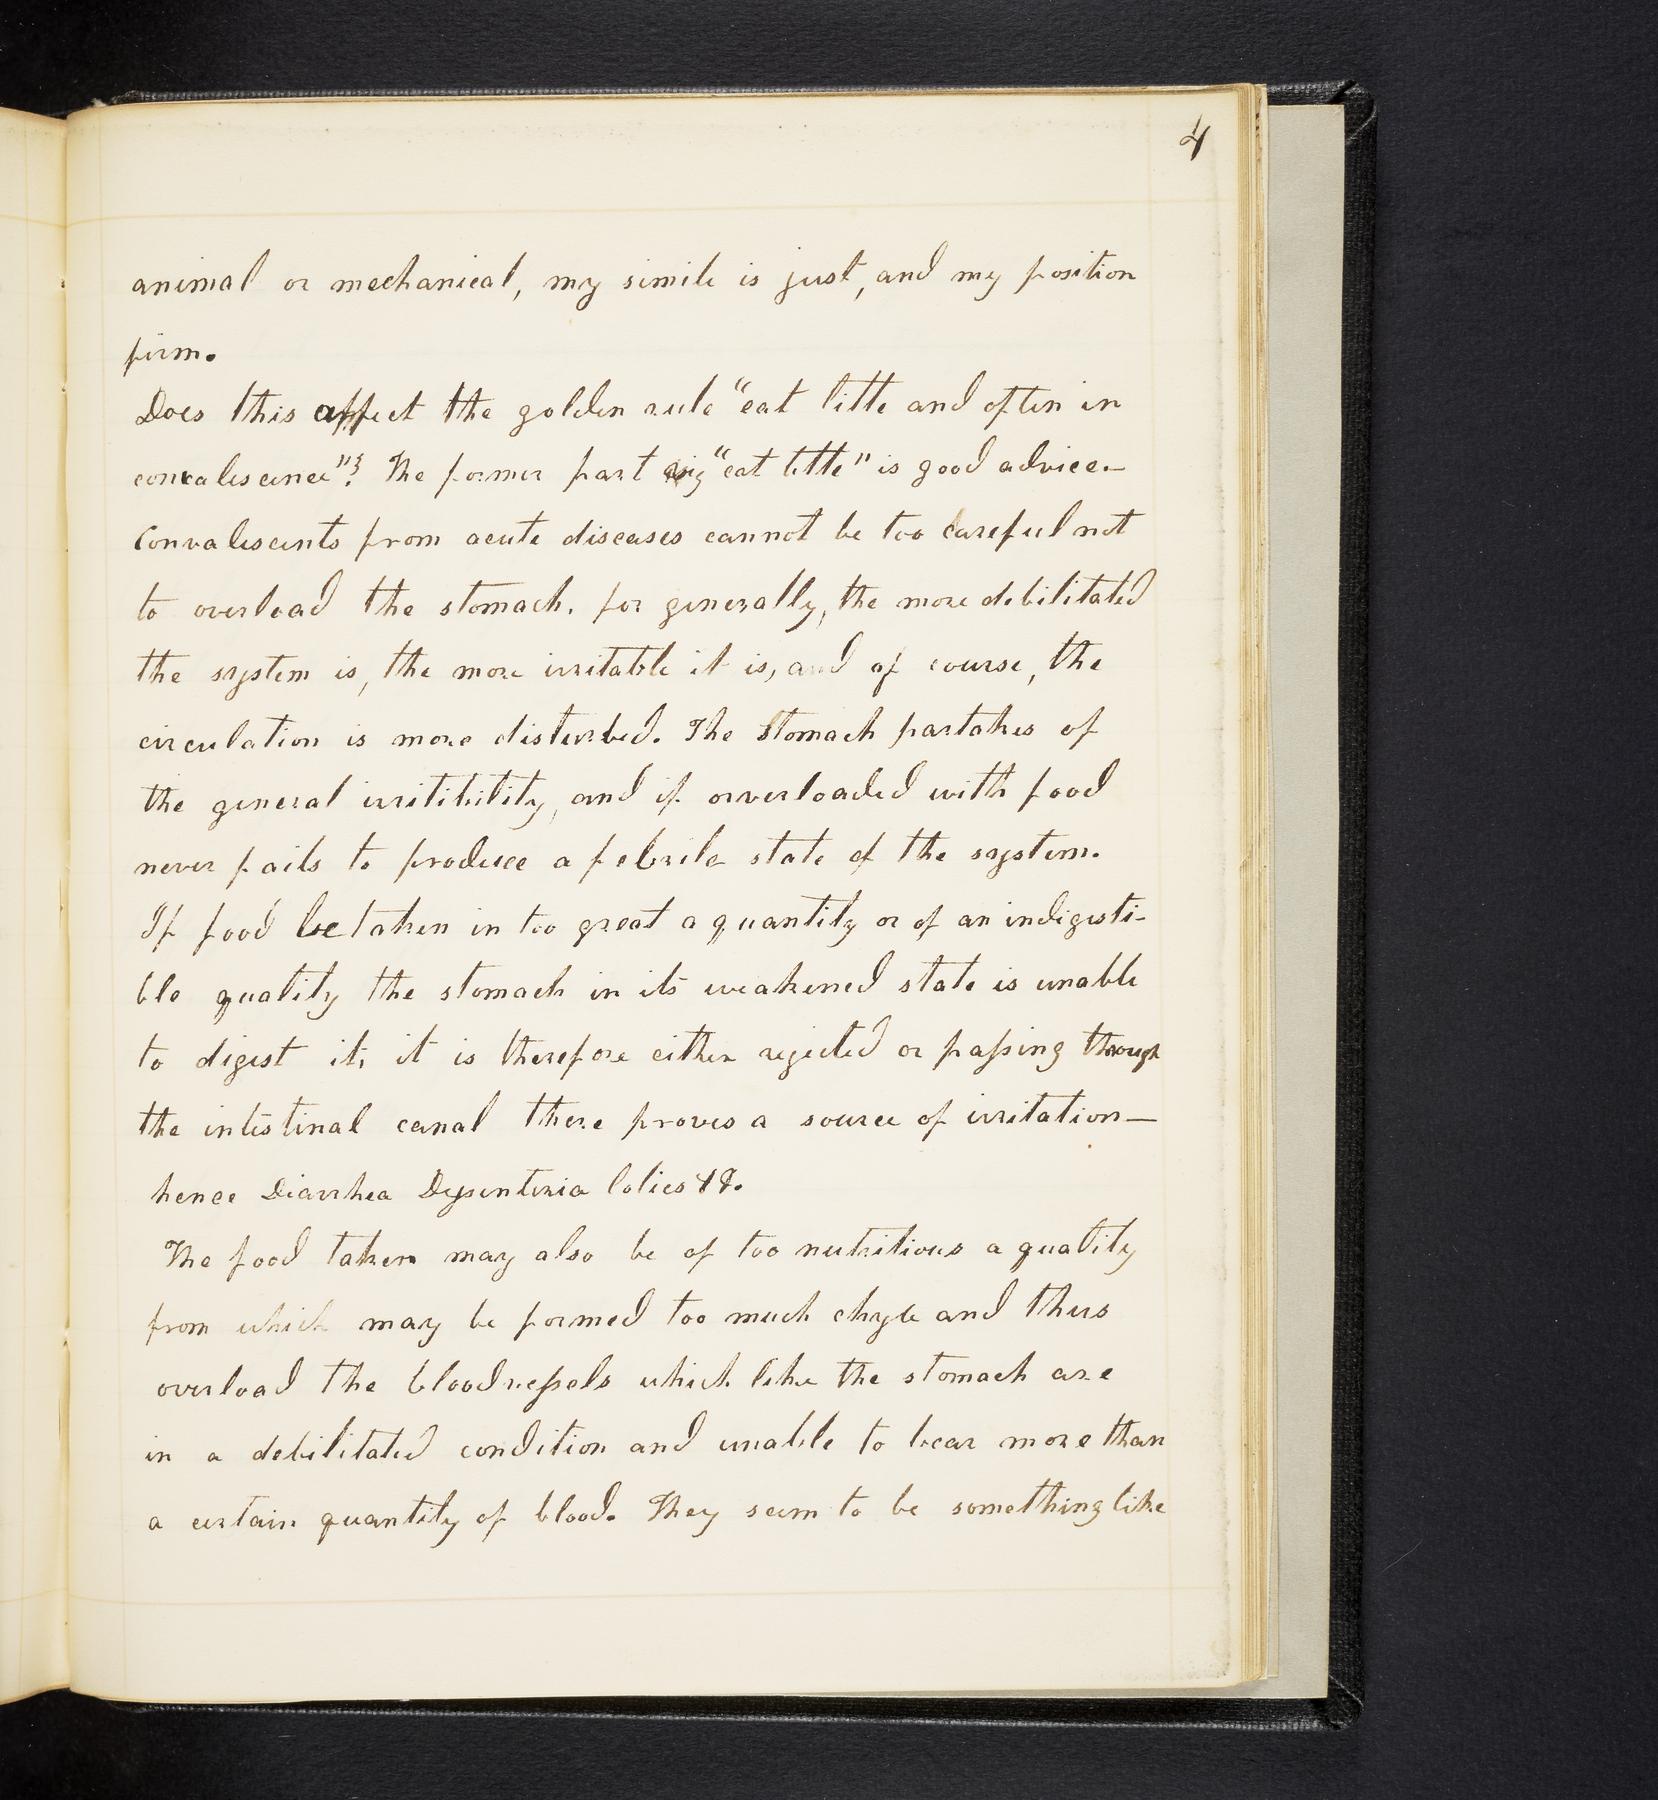 4
animal or mechanical, my simile is just, and my position
firm.
Does this affect the golden rule "eat little and often in
convalescence"? The former part viz "eat little" is good advice.—
Convalescents from acute diseases cannot be too careful not
to overload the stomach. for generally, the more debilitated
the system is, the more irritable it is, and of course, the
circulation is more disturbed. The Stomach partakes of
the general irritibility, and if orverloaded with food
never fails to produce a febrile state of the system.
If food be taken in too great a quantity or of an indigesti-
ble quality the stomach in its weakened state is unable
to digest it, it is therefore either rejected or passing through
the intestinal canal there proves a source of irritation—
hence Diarrhea Dysenteria Colics &c.
The food taken may also be of too nutritious a quality
from which may be formed too much chyle and thus
overload the bloodvessels which like the stomach are
in a debilitated condition and unable to bear more than
a certain quantity of blood. They seem to be something like